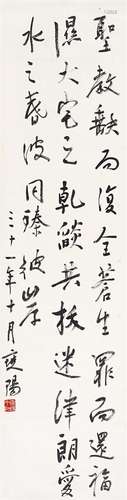 聖教缺而復全蒼生罪而還福
濕火宅之乾燄共拔迷津朗愛
水之昏波同臻彼岸
三十一年十月